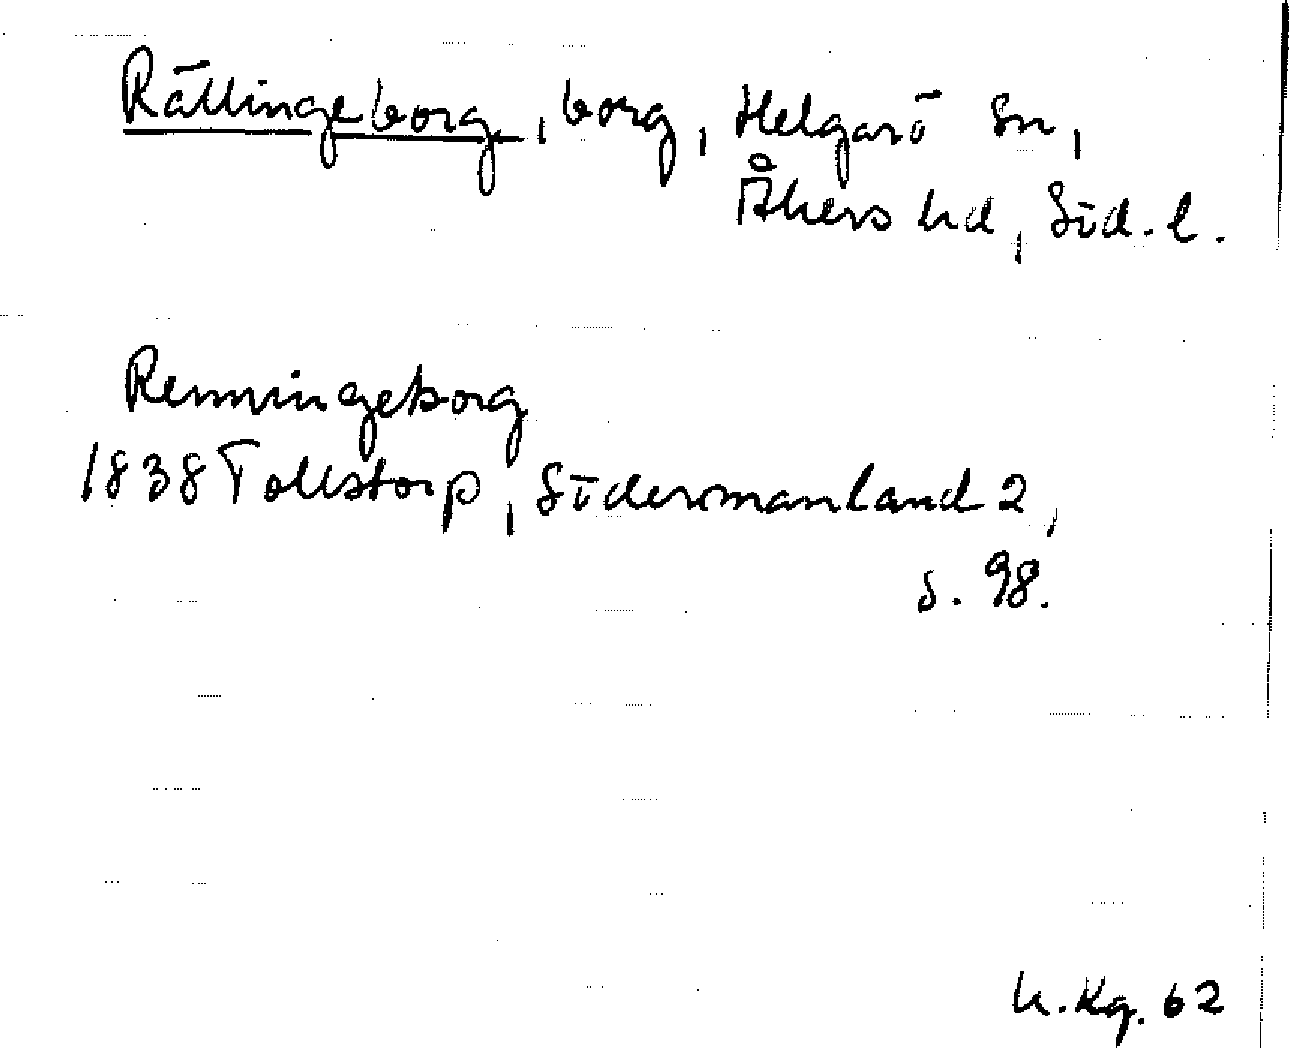 Rällingeborg, borg, Helgarö Sn,
Åkers hd, Söd. l.
Remmingeborg
1838 Tollstorp, Södermanland 2,
s. 98.
K. Kg. 62